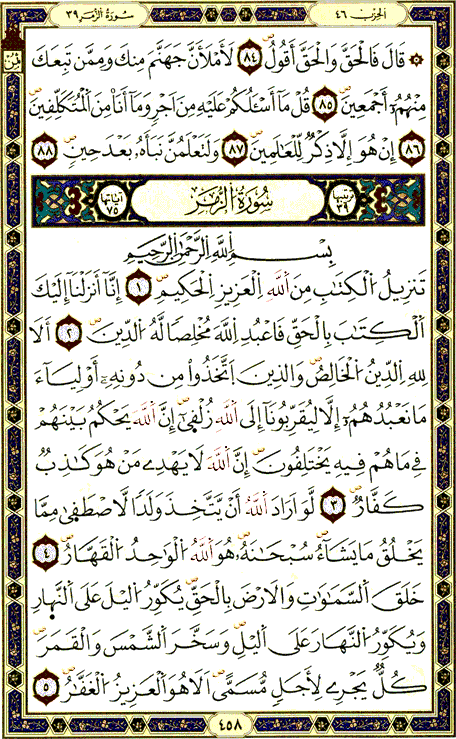 الحزب ٤٦
سورة الزمر ٣٩
ثمن
۞ قَالَ فَالْحَقَّ وَالْحَقَّ أَقُولُ ٨٤ لَأَمْلَأَنَّ جَهَنَّمَ مِنكَ وَمِمَّن تَبِعَكَ
مِنْهُمُۥٓ أَجْمَعِينَ ٨٥ قُلْ مَآ أَسْـَٔلُكُمْ عَلَيْهِ مِنَ اَجْرٍ وَمَآ أَنَا۠ مِنَ اَلْمُتَكَلِّفِينَ
٨٦ إِنْ هُوَ إِلَّا ذِكْرٌ لِّلْعَٰلَمِينَ ٨٧ وَلَتَعْلَمُنَّ نَبَأَهُۥ بَعْدَ حِينٍ ٨٨
ترتيبها ٣٩
سُورَةُ الزُّمَرِ
آياتها ٧٥
بِسْمِ اللَّهِ الرَّحْمَٰنِ الرَّحِيمِ
تَنزِيلُ اُلْكِتَٰبِ مِنَ اَللَّهِ اِلْعَزِيزِ اِلْحَكِيمِ ١ إِنَّآ أَنزَلْنَآ إِلَيْكَ
اَلْكِتَٰبَ بِالْحَقِّ فَاعْبُدِ اِللَّهَ مُخْلِصاً لَّهُ اُلدِّينَ ٢ أَلَا
لِلهِ اِلدِّينُ اُلْخَالِصُ وَالذِينَ اَتَّخَذُواْ مِن دُونِهِۦٓ أَوْلِيَآءَ
مَا نَعْبُدُهُمُۥٓ إِلَّا لِيُقَرِّبُونَآ إِلَى اَللَّهِ زُلْفَىٰٓ إِنَّ اَللَّهَ يَحْكُمُ بَيْنَهُمْ
فِي مَا هُمْ فِيهِ يَخْتَلِفُونَ إِنَّ اَللَّهَ لَا يَهْدِے مَنْ هُوَ كَٰذِبٌ
كَفَّارٌ ٣ لَّوَ اَرَادَ اَللَّهُ أَنْ يَّتَّخِذَ وَلَداً لَّاصْطَفَىٰ مِمَّا
يَخْلُقُ مَا يَشَآءُ سُبْحَٰنَهُۥ هُوَ اَللَّهُ اُلْوَٰحِدُ اُلْقَهَّارُ ٤
خَلَقَ اَلسَّمَٰوَٰتِ وَالَارْضَ بِالْحَقِّ يُكَوِّرُ اُلَّيْلَ عَلَى اَلنَّهَارِ
وَيُكَوِّرُ اُلنَّهَارَ عَلَى اَلَّيْلِ وَسَخَّرَ اَلشَّمْسَ وَالْقَمَرَ
كُلٌّ يَجْرِے لِأَجَلٍ مُّسَمًّى اَلَا هُوَ اَلْعَزِيزُ اُلْغَفَّٰرُ ٥
٤٥٨